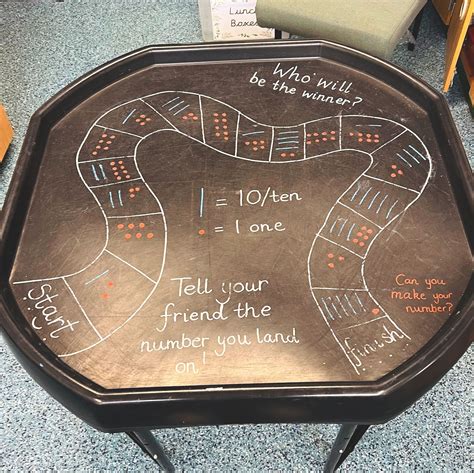 Lunch
Boxes
Who will
be the winner?
= 10/ten
= 1 one
Start
Tell your
friend the
number you land
on!
Can you
make your
number?
finish!